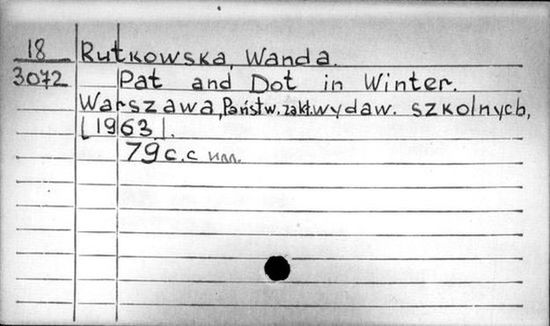 18 Rutkowska, Wanda.
3072 Pat and Dot in Winter.
Warszawa, Państw. zakł. wydaw. szkolnych,
[1963].
79 с. с илл.